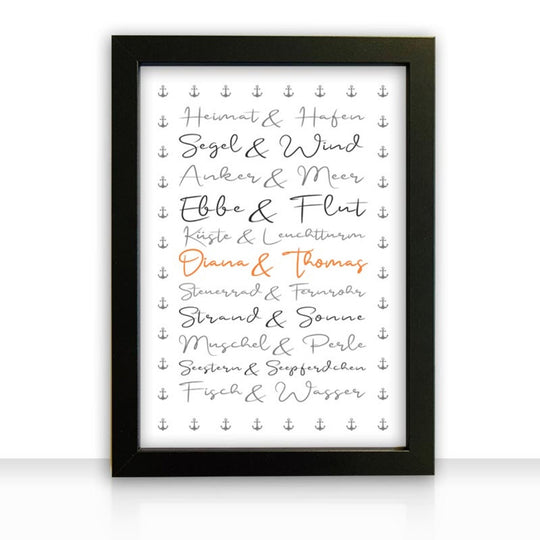 Heimat & Hafen
Segel & Wind
Anker & Meer
Ebbe & Flut
Küste & Leuchtturm
Diana & Thomas
Steuerrad & Fernrohr
Strand & Sonne
Muschel & Perle
Seestern & Seepferdchen
Fisch & Wasser